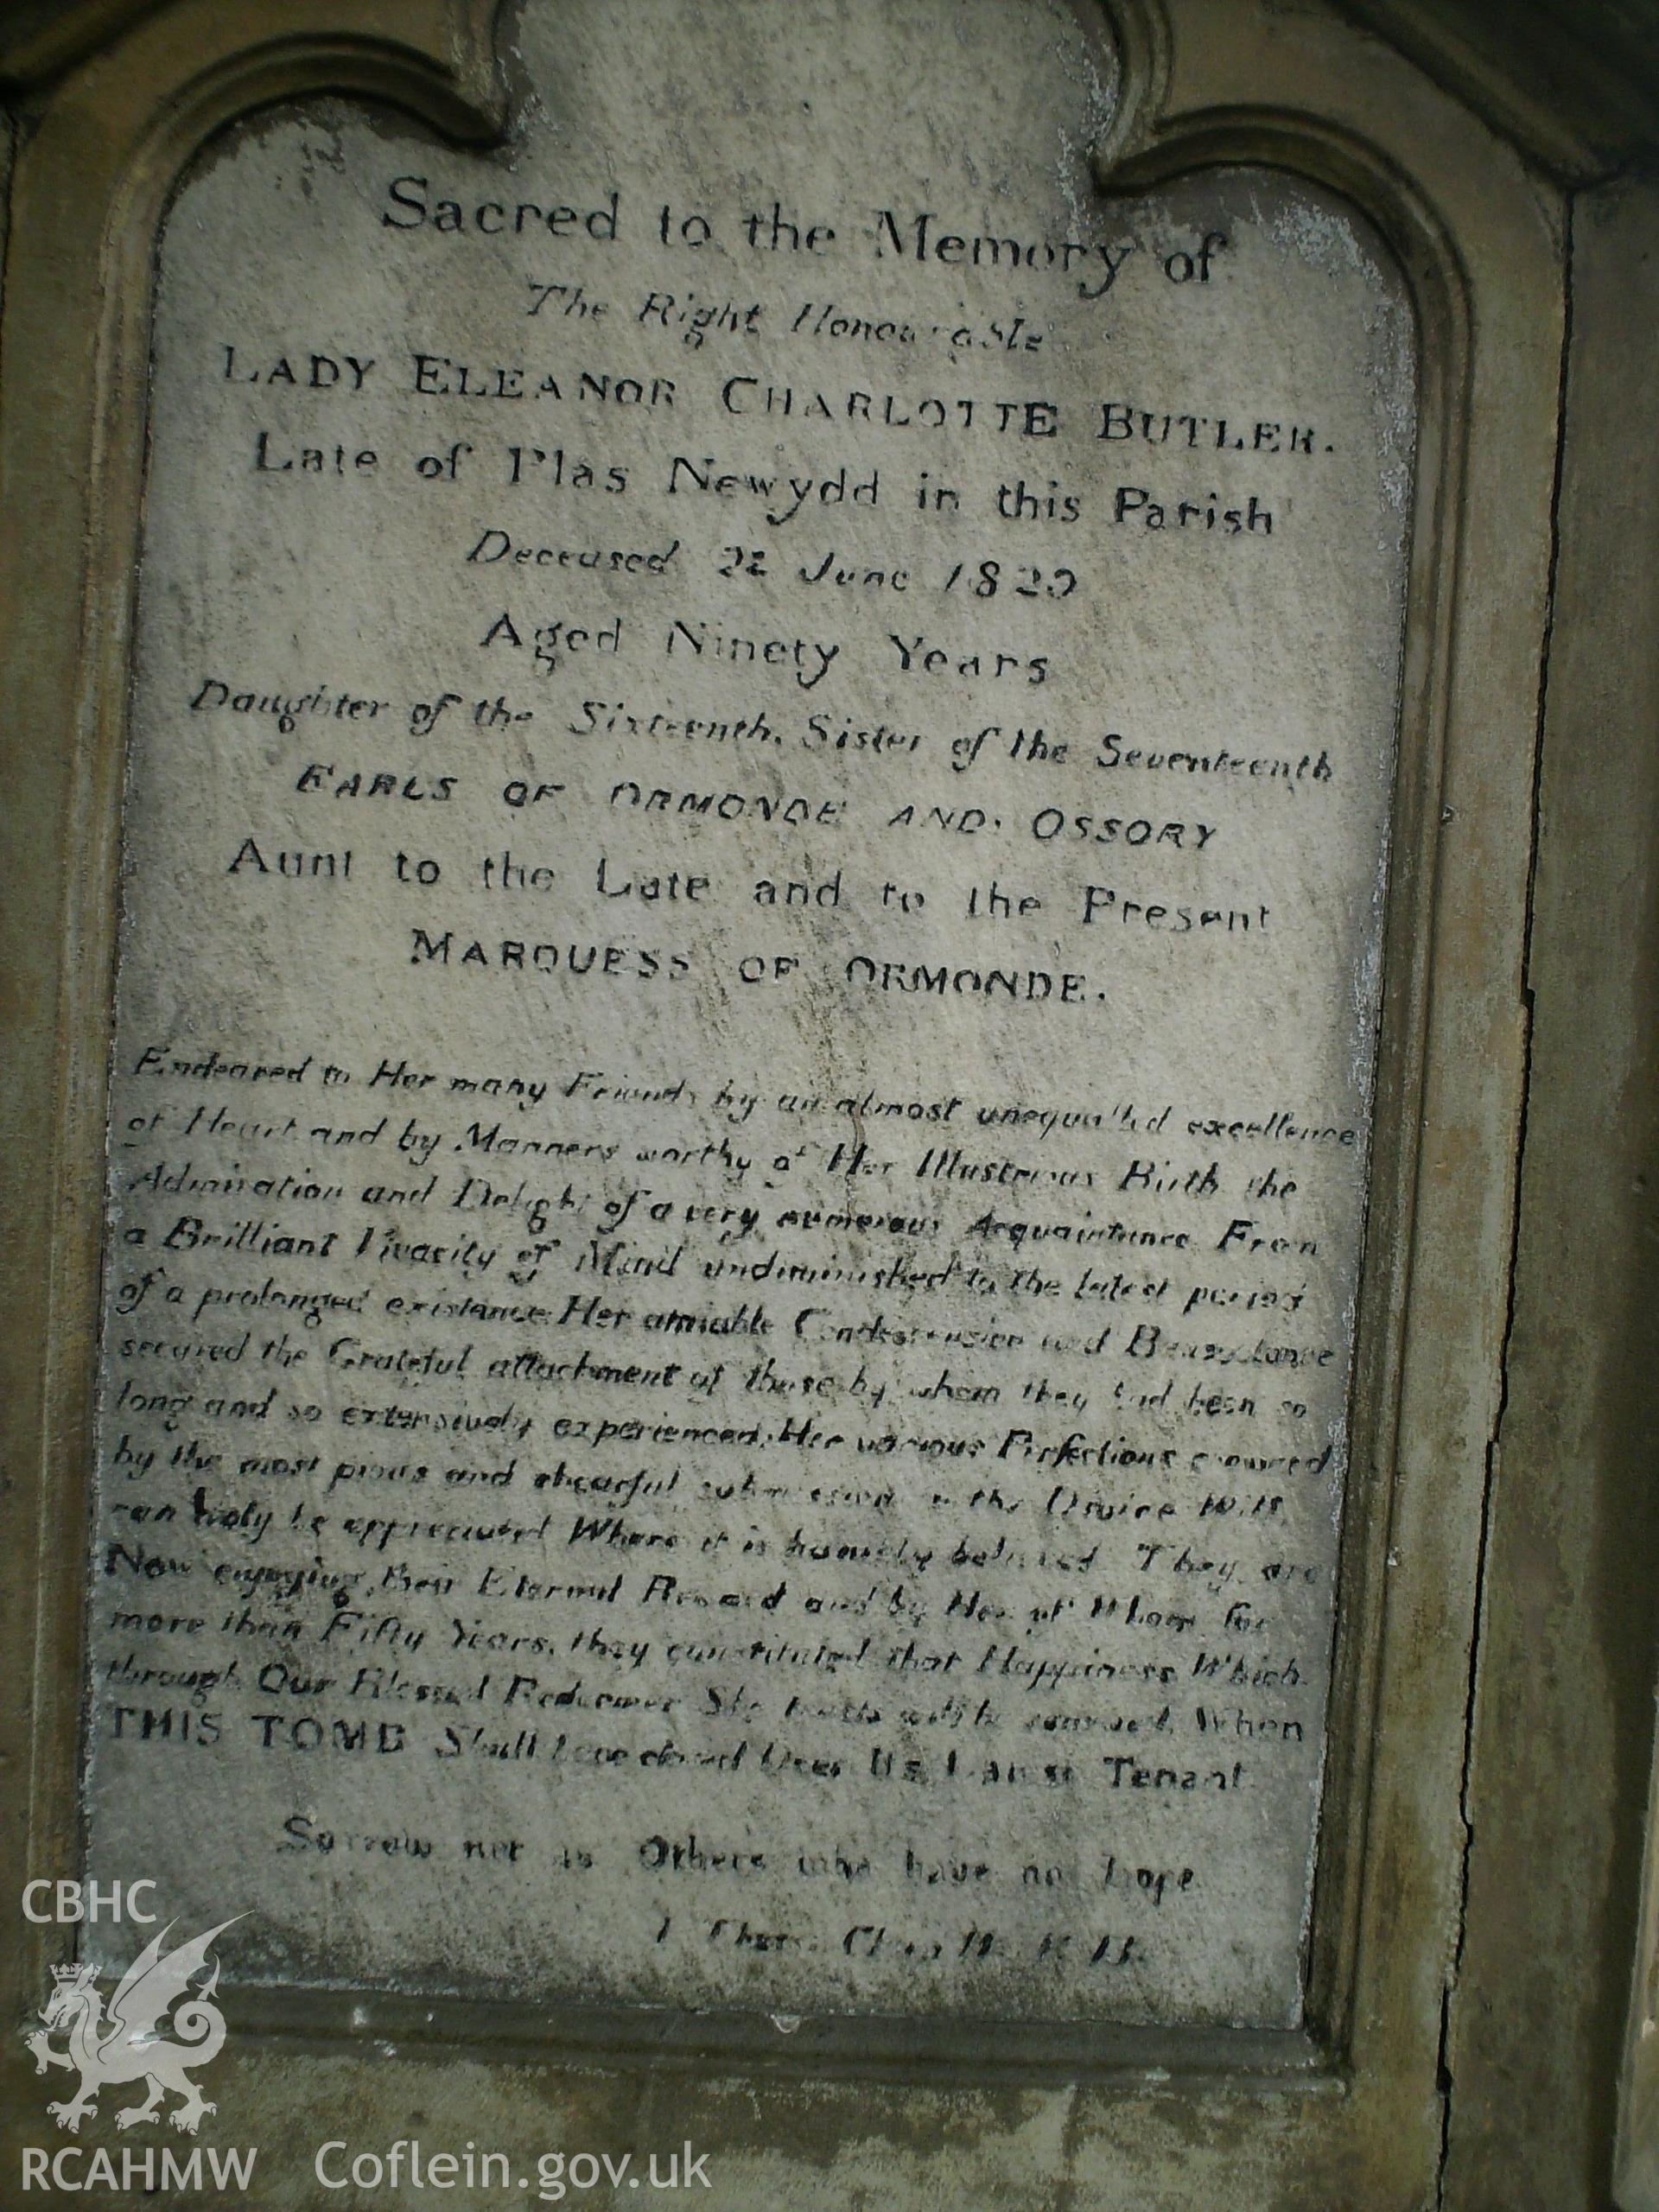 Sacred to the Memory of
The Right Honourable
LADY ELEANOR CHARLOTTE BUTLER.
Late of Plas Newydd in this Parish
Deceased 2 June 1829
Aged Ninety Years
Daughter of the Sixteenth, Sister of the Seventeenth
EARLS OF ORMONDE AND OSSORY
Aunt to the Late and to the Present
MARQUESS OF ORMONDE.
Endeared to Her many Friends by an almost unequalled excellence
of Heart and by Manners worthy of Her Illustrious Birth the
Admiration and Delight of a very numerous Acquaintance From
a Brilliant Vivacity of Mind undiminished to the latest period
of a prolonged existance. Her amiable Condescension and Benevolence
secured the Grateful attachment of those by whom they had been so
long and so extensively experienced, Her various Perfections crowned
by the most pious and chearful submission to the Divine Will,
can only be appreciated Where it is humbly believed They are
Now enjoying their Eternal Reward and by Her of Whom for
more than Fifty Years, they constituted that Happiness Which
through Our Blessed Redeemer She trusts will be renewed, When
THIS TOMB Shall have closed Over Its Latest Tenant
Sorrow not as Others who have no hope
1 Thess. Chap
CBHC
RCAHMW Coflein.gov.uk